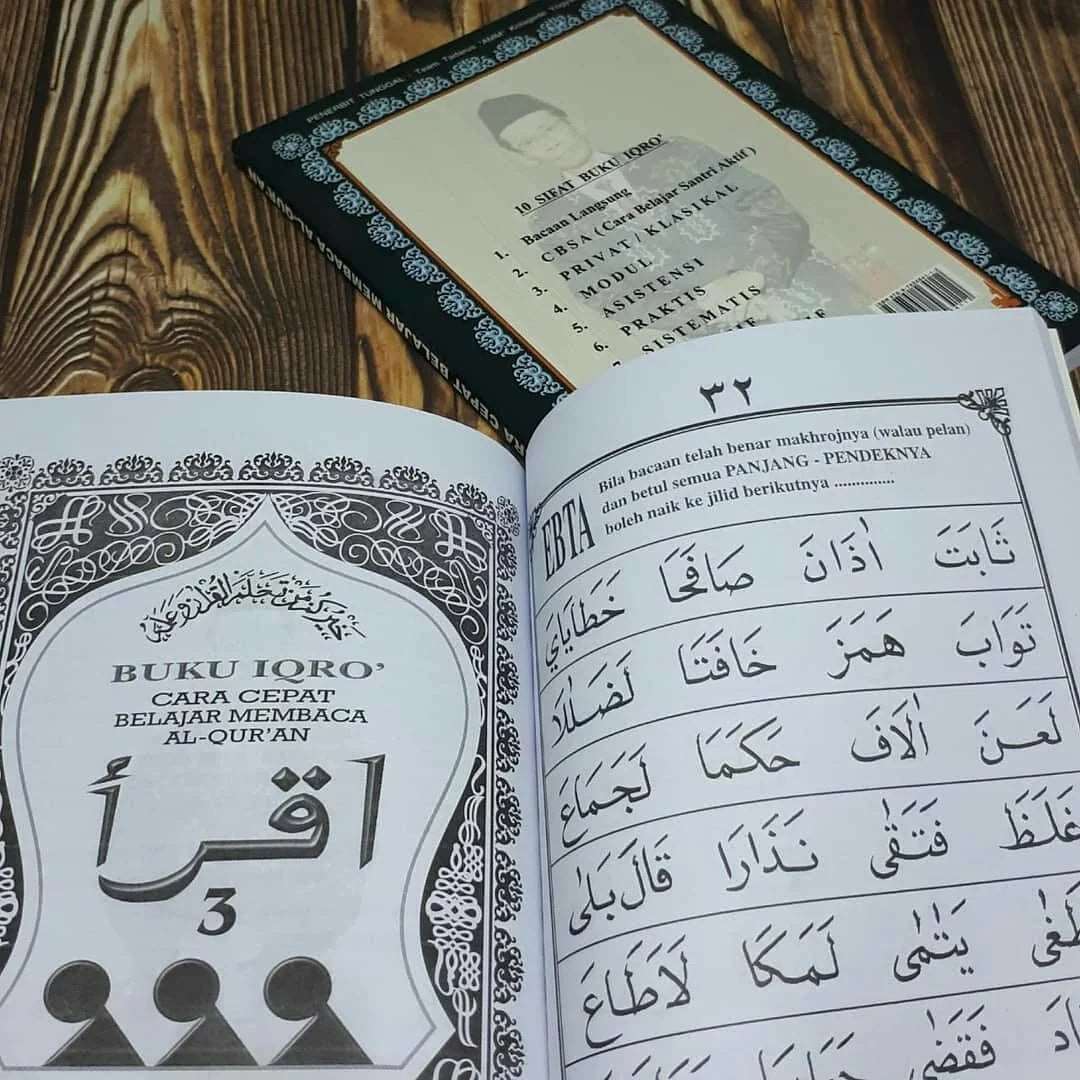 PENERBIT TUNGGAL : Team Tadarus "AMM"
CEPAT BELAJAR MEMBACA
10 SIFAT BUKU IQRO'
1. Bacaan Langsung
2. CBSA ( Cara Belajar Santri Aktif )
3. PRIVAT / KLASIKAL
4. MODUL
5. ASISTENSI
6. PRAKTIS
SISTEMATIS
BUKU IQRO'
CARA CEPAT
BELAJAR MEMBACA
AL-QUR'AN
اقرأ
3
٣٢
EBTA
Bila bacaan telah benar makhrojnya (walau pelan)
dan betul semua PANJANG - PENDEKNYA
boleh naik ke jilid berikutnya ..............
ثَابَتَ اٰذَانَ صَافَحَا خَطَايَايَ
تَوَابَ هَمَزَ خَافَتَا لَضَلٰلَا
لَعَنَ اٰلَافَ حَكَمَا لَجَمَاعَ
غَلَظَ فَتَقٰى نَذَارَا قَالَ بَلٰى
يَتٰمٰى لَمَكَا لَاطَاعَ
فَقَضٰى